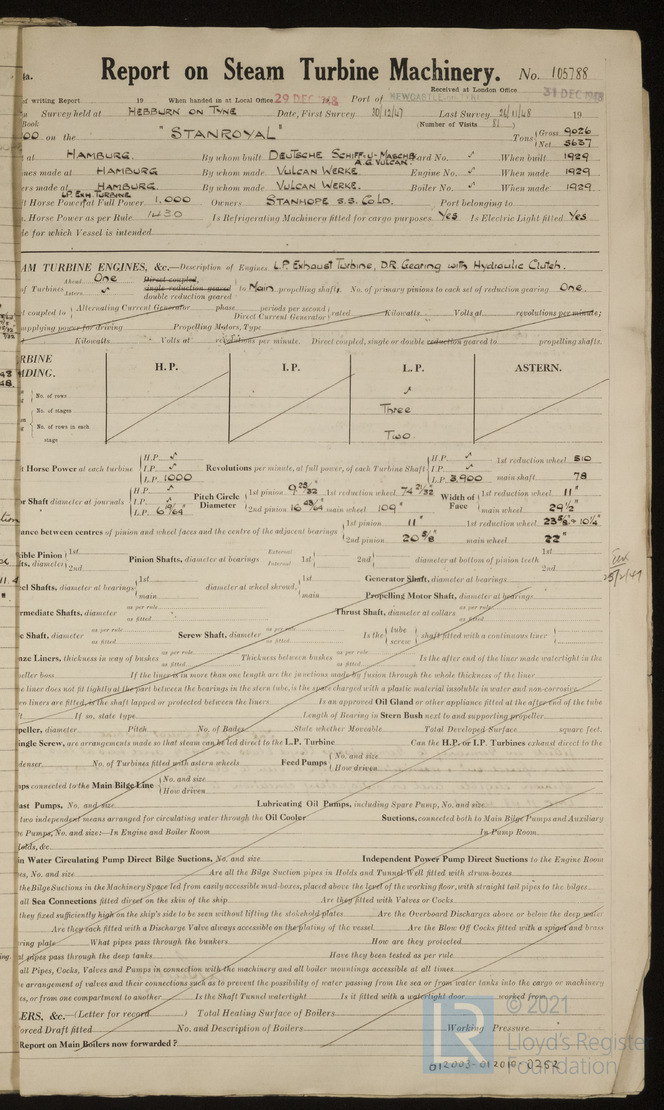 Report on Steam Turbine Machinery. No. 105788
Received at London Office
of writing Report 19 When handed in at Local Office 29 DEC 1948 Port of NEWCASTLE-on-TYNE 31 DEC 1948
Survey held at HEBBURN ON TYNE Date, First Survey 30/12/47 Last Survey 19
Book (Number of Visits 81)
on the "STANROYAL" Tons Gross 9026
Net 5637
at HAMBURG. By whom built DEUTSCHE SCHIFF-U-MASCHB A.G. VULCAN. Yard No. When built 1929
made at HAMBURG By whom made VULCAN WERKE. Engine No. When made 1929
made at HAMBURG. By whom made VULCAN WERKE. Boiler No. When made 1929
L.P. EXH. TURBINE
Horse Power at Full Power 1,000 Owners STANHOPE S.S. Co Lo. Port belonging to
Horse Power as per Rule 1430 Is Refrigerating Machinery fitted for cargo purposes Yes Is Electric Light fitted Yes
for which Vessel is intended
AM TURBINE ENGINES, &c.—Description of Engines L.P. Exhaust Turbine, D.R. Gearing with Hydraulic Clutch.
of Turbines Ahead One Direct coupled,
Astern single reduction geared to Main propelling shafts. No. of primary pinions to each set of reduction gearing One.
double reduction geared
coupled to Alternating Current Generator phase periods per second rated Kilowatts Volts at revolutions per minute;
Direct Current Generator
supplying power for driving Propelling Motors, Type
Kilowatts Volts at revolutions per minute. Direct coupled, single or double reduction geared to propelling shafts.
RBINE H.P. I.P. L.P. ASTERN.
DING.
No. of rows
No. of stages Three
No. of rows in each stage Two
Horse Power at each turbine H.P. I.P. L.P. 1000 Revolutions per minute, at full power, of each Turbine Shaft H.P. I.P. L.P. 3,900 1st reduction wheel 510
main shaft 78
Shaft diameter at journals H.P. I.P. L.P. 6 19/64" Pitch Circle Diameter 1st pinion 9 25/32 1st reduction wheel 74 21/32 Width of Face 1st reduction wheel 11"
2nd pinion 16 43/64" main wheel 109" main wheel 29 1/2"
between centres of pinion and wheel faces and the centre of the adjacent bearings 1st pinion 11" 1st reduction wheel 23 5/8 + 10 1/4"
2nd pinion 20 5/8 main wheel 22"
ible Pinion 1st Pinion Shafts, diameter at bearings External 1st 2nd diameter at bottom of pinion teeth 1st
diameter 2nd Internal 2nd
Shafts, diameter at bearings 1st diameter at wheel shroud, 1st Generator Shaft, diameter at bearings
main main Propelling Motor Shaft, diameter at bearings
rmediate Shafts, diameter as per rule Thrust Shaft, diameter at collars as per rule
as fitted as fitted
Shaft, diameter as per rule Screw Shaft, diameter as per rule Is the tube shaft fitted with a continuous liner
as fitted as fitted screw
nze Liners, thickness in way of bushes as per rule Thickness between bushes as per rule Is the after end of the liner made watertight in the
as fitted as fitted
eller boss If the liner is in more than one length are the junctions made by fusion through the whole thickness of the liner
e liner does not fit tightly at the part between the bearings in the stern tube, is the space charged with a plastic material insoluble in water and non-corrosive
liners are fitted, is the shaft lapped or protected between the liners Is an approved Oil Gland or other appliance fitted at the after end of the tube
If so, state type Length of Bearing in Stern Bush next to and supporting propeller
peller, diameter Pitch No. of Blades State whether Moveable Total Developed Surface square feet.
ingle Screw, are arrangements made so that steam can be led direct to the L.P. Turbine Can the H.P. or I.P. Turbines exhaust direct to the
denser No. of Turbines fitted with astern wheels Feed Pumps No. and size
How driven
connected to the Main Bilge Line No. and size
How driven
ast Pumps, No. and size Lubricating Oil Pumps, including Spare Pump, No. and size
two independent means arranged for circulating water through the Oil Cooler Suctions, connected both to Main Bilge Pumps and Auxiliary
e Pumps, No. and size:—In Engine and Boiler Room In Pump Room
olds, &c.
in Water Circulating Pump Direct Bilge Suctions, No. and size Independent Power Pump Direct Suctions to the Engine Room
es, No. and size Are all the Bilge Suction pipes in Holds and Tunnel Well fitted with strum-boxes
the Bilge Suctions in the Machinery Space led from easily accessible mud-boxes, placed above the level of the working floor, with straight tail pipes to the bilges
all Sea Connections fitted direct on the skin of the ship Are they fitted with Valves or Cocks
they fixed sufficiently high on the ship's side to be seen without lifting the stokehold plates Are the Overboard Discharges above or below the deep water
Are they each fitted with a Discharge Valve always accessible on the plating of the vessel Are the Blow Off Cocks fitted with a spigot and brass
ring plate What pipes pass through the bunkers How are they protected
at pipes pass through the deep tanks Have they been tested as per rule
all Pipes, Cocks, Valves and Pumps in connection with the machinery and all boiler mountings accessible at all times
e arrangement of valves and their connections such as to prevent the possibility of water passing from the sea or from water tanks into the cargo or machinery
es, or from one compartment to another Is the Shaft Tunnel watertight Is it fitted with a watertight door worked from
ERS, &c.—(Letter for record ) Total Heating Surface of Boilers
orced Draft fitted No. and Description of Boilers Working Pressure
Report on Main Boilers now forwarded?
© 2021
Lloyd's Register
Foundation
012003-012010-0252